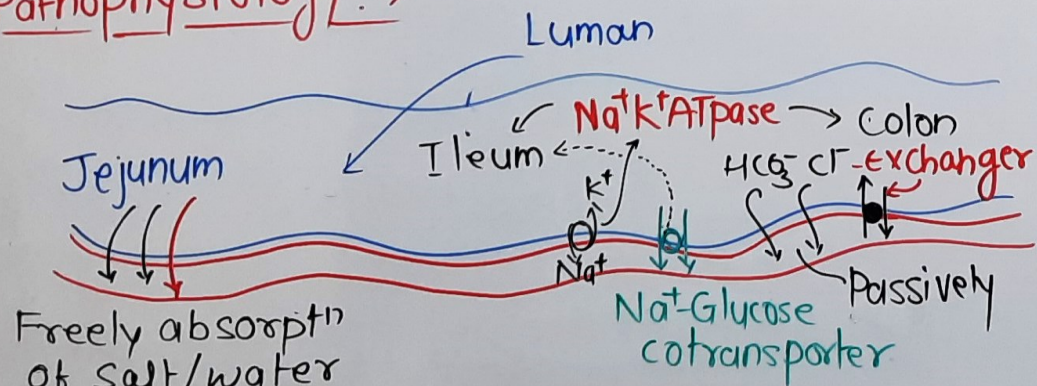 Pathophysiology:
Luman
Na⁺K⁺ATpase
Colon
Ileum
Jejunum
HCO₃⁻ Cl⁻-Exchanger
K⁺
Na⁺
Passively
Na⁺-Glucose
cotransporter
Freely absorptⁿ
of salt/water